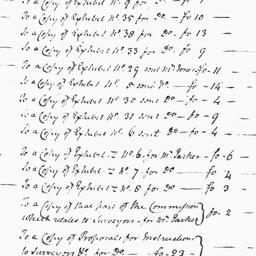 To a Copy of Exhibit No. 9 for Do. - fo
To a Copy of Exhibit No. 35 for Do. - fo 10 -
To a Copy of Exhibit No. 38 for Do. fo. 13 -
To a Copy of Exhibit No. 33 for Do. fo 9
To a Copy of Exhibit No. 29 fo - 11
To a Copy of Exhibit No. 5 sent Do - fo - 14 -
To a Copy of Exhibit No. 30 sent Do - fo - 4
To a Copy of Exhibit No. 31 sent Do - fo - 9
To a Copy of Exhibit No. 6 sent Do - fo - 4
To a Copy of Exhibit - No. 6 - for Mr. Parker - fo - 6 -
To a Copy of Exhibit - No. 7 for Do - fo 4
To a Copy of Exhibit - No. 8 for Do - fo 3 -
To a Copy of that part of the Commission
which relates to Surveyors - for Mr. Parker } fo - 2
To a Copy of Proposals for Instructions
to Surveyors for Do - fo - 23 -